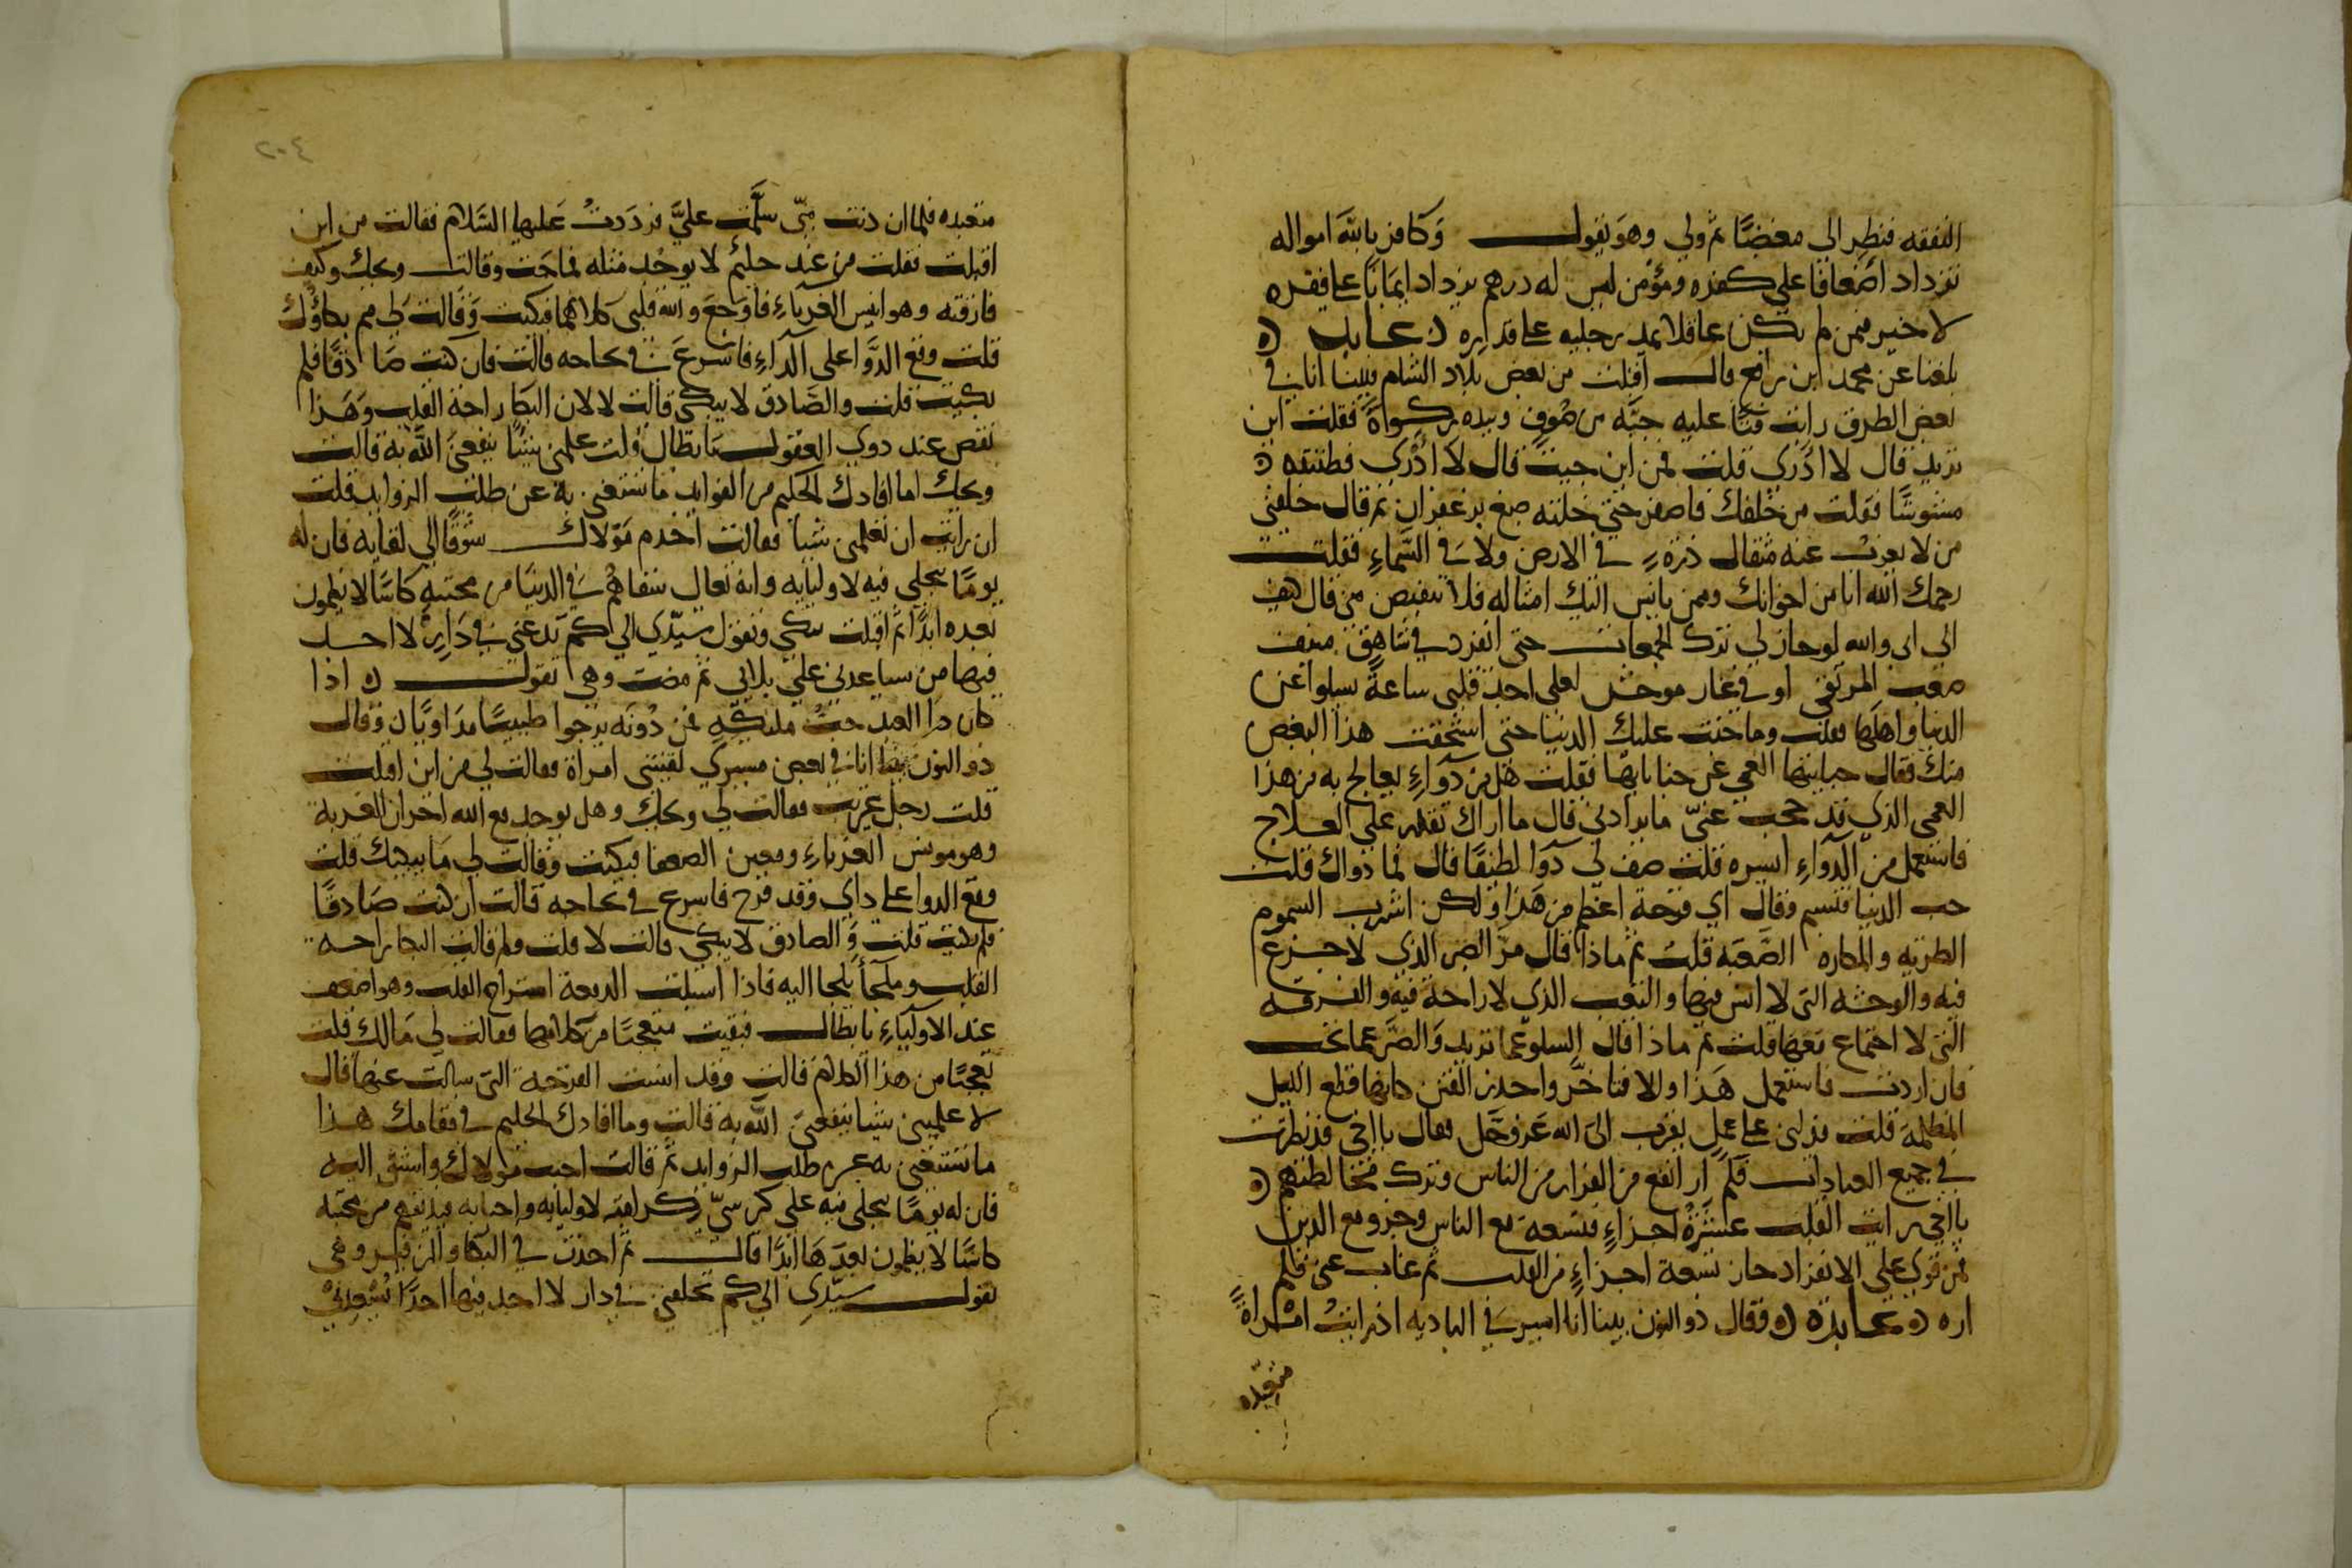 النفقه فنظر الي مغضبًا ثم ولي وهو يقول وكافر بالله امواله
تزداد اضعافا علي كفره ومؤمن ليس له درهم يزداد ايمانا على فقره
لا خير فيمن لم يكن عاقلا يمد رجليه على قدره عابد
بلغنا عن محمد ابن رافع قال اقبلت من بعض بلاد الشام فبينا انا في
بعض الطرق رايت فتًا عليه جبّه من صُوف وبيده ركوة فقلت اين
تريد قال لا ادري قلت فمن اين جيت قال لا ادري فظننته
مشوشًا فقلت من خلقك فاصفر حتي خلته صبغ بزعفران ثم قال خلقني
من لا يعزب عنه مثقال ذره في الارض ولا في السّماء فقلت
رحمك الله انا من اخوانك وممن يانس اليك امثاله فلا تنقبض مني فقال
الي اي والله لو جاز لي ترك الجمعات حتي انفرد في شاهق منيف
صعب المرتقي او في غار موحش لعلي اجد قلبي ساعةً يسلوا عن
الدنيا واهلها فقلت وما جنت عليك الدنيا حتى استحقت هذا البغض
منك فقال جنايتها العمي عن جناياتها فقلت هل من دواءٍ يعالج به من هذا
العمي الذي قد حجب عنّي ما يراد بي قال ما اراك تقدر علي العلاج
فاستعمل من الدواءِ ايسره قلت صف لي دوا لطيفًا قال فما دواك قلت
حب الدنيا فتبسم وقال اي قرحة اعظم من هذا ولكن اشرب السموم
الطريه والمكاره الصّعبه قلت ثم ماذا قال مرّ الصبر الذي لا جزع
فيه والوحشه التي لا انس فيها والتعب الذي لا راحة فيه والفرقه
التي لا اجتماع معها قلت ثم ماذا قال السلو عما تريد والصبر عما تحب
فان اردت فاستعمل هذا والا فتاخّر واحذر الفتن كانها قطع الليل
المظلمة قلت فدلني على عمل يقرب الى الله عز وجّل فقال يا اخي قد نظرت
في جميع العبادات فلم ار انفع من الفرار من الناس وترك مخالطتهم
يا اخي رايت القلب عشَرَةُ اجزاءٍ فتسعة مع الناس وجزو مع الدين
فمن قوي علي الانفراد حاز تسعة اجزاءٍ من القلب ثم غاب عني فلم
اره عابدة فقال ذو النون بينا انا اسير في الباديه اذ رايتُ امراةً
متعبده
٢٠٤
متعبده فلما ان دنت منّي سلَّمت عليَّ فردَدتُ عَليها السّلام فقالت من اين
اقبلت فقلت من عند حليمٍ لا يوجُد مثله فصاحت وقالت ويحك وكيف
فارقته وهو انيس الغرباءِ فاوجعَ والله قلبي كلامها فبكيت وَقالت لي مم بكاؤك
قلت وقع الدَّوا على الداءِ فاسرعَ في نجاحه قالت فان كنت صادقًا فلم
بكيت قلت والصَّادق لا يبكي قالت لا لان البكا راحة القلب وهَذا
نقص عند ذوي العقول يَا بطّال قلت علمني شيئًا ينفعني الله به قالت
ويحك اما افادك الحليم من الفوايد ما تستغني به عن طلب الزوايد قلت
ان رايت ان تعلمين شيا فقالت اخدم مَوْلاك شوقًا الي لقايه فان له
يومًا يتجلي فيه لاوليايه وانه تعالي سقاهُم في الدنيا من محبته كاسًا لا يظمون
بعده ابدًا ثم اقبلت تبكي وتقول سيّدي الي كم تدعني في دَارٍ لا احد
فيها من يساعدني علي بلايي ثم مضت وهي تقول اذا
كان دَا العبد حبُّ مليكه فمن دُونه يرجوا طبيبًا مداويًا وقال
ذو النون بينا انا في بعض مسيري لقيتني امراة فقالت لي من اين اقبلت
قلت رجل غريب فقالت لي ويحك وهل يوجد مع الله احزان الغربة
وهو مونس الغرباءِ ومعين الضعفا فبكيت وقالت لي مَا يبكيك قلت
وقع الدوا على داي وقد قرح فاسرع في نجاحه قالت ان كنت صَادقًا
فلم بكيت قلت وَالصادق لا يبكي قالت لا قلت ولم قالت البكا راحه
القلب وملجأ يلجا اليه فاذا اسبلت الدمعة استراح القلب وهو اضعف
عند الاولياءِ يا بطال فبقيت متعجبًا من كلامها فقالت لي مَالك قلت
تعجبًا من هذا الكلام قالت وقد انست القرحة التي سالت عنها قال
لا علميني شيا ينفعني الله به قالت وما افادك الحليم في مقامك هذا
ما تستغني به عن طلب الزوايد ثم قالت احب مولاك واشتق اليه
فان له يومًا يتجلي فيه علي كرسيّ كرامته لاوليايه واحبايه فيذيقهم من محبته
كاسًا لا يظمون بعدَهَا ابدًا قالت ثم اخذت في البكا والزفير وهي
تقول سيّدي الي كم تخلفني في دار لا اجد فيها احدًا يُسْعِدُنيْ